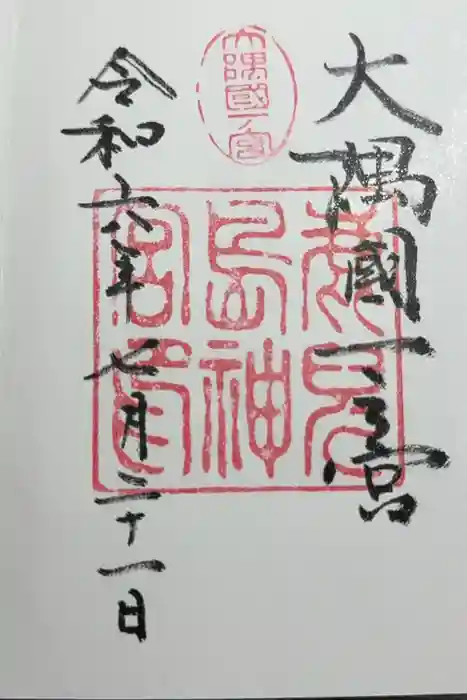 大隅國一之宮
大隅國一宮
鹿兒
島神
宮印
令和六年七月二十一日